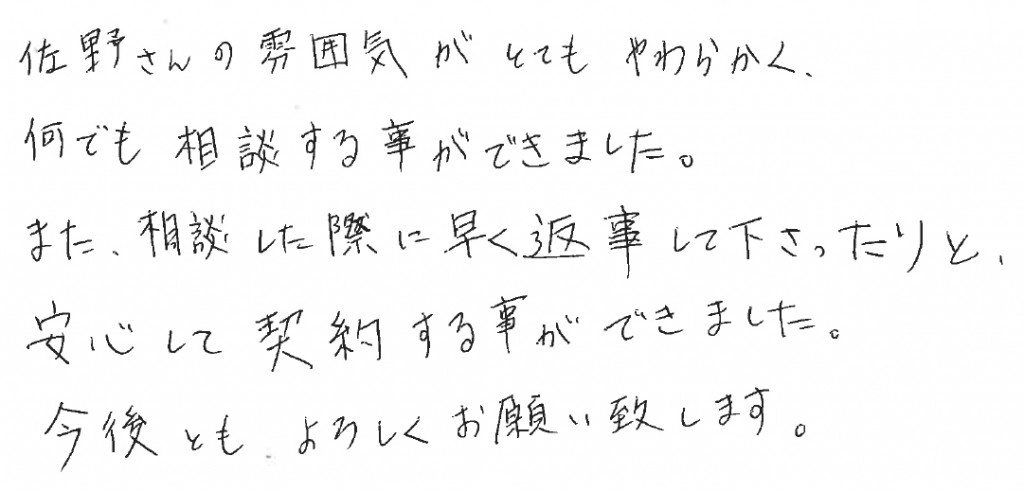 佐野さんの雰囲気がとてもやわらかく、
何でも相談する事ができました。
また、相談した際に早く返事して下さったりと、
安心して契約する事ができました。
今後ともよろしくお願い致します。